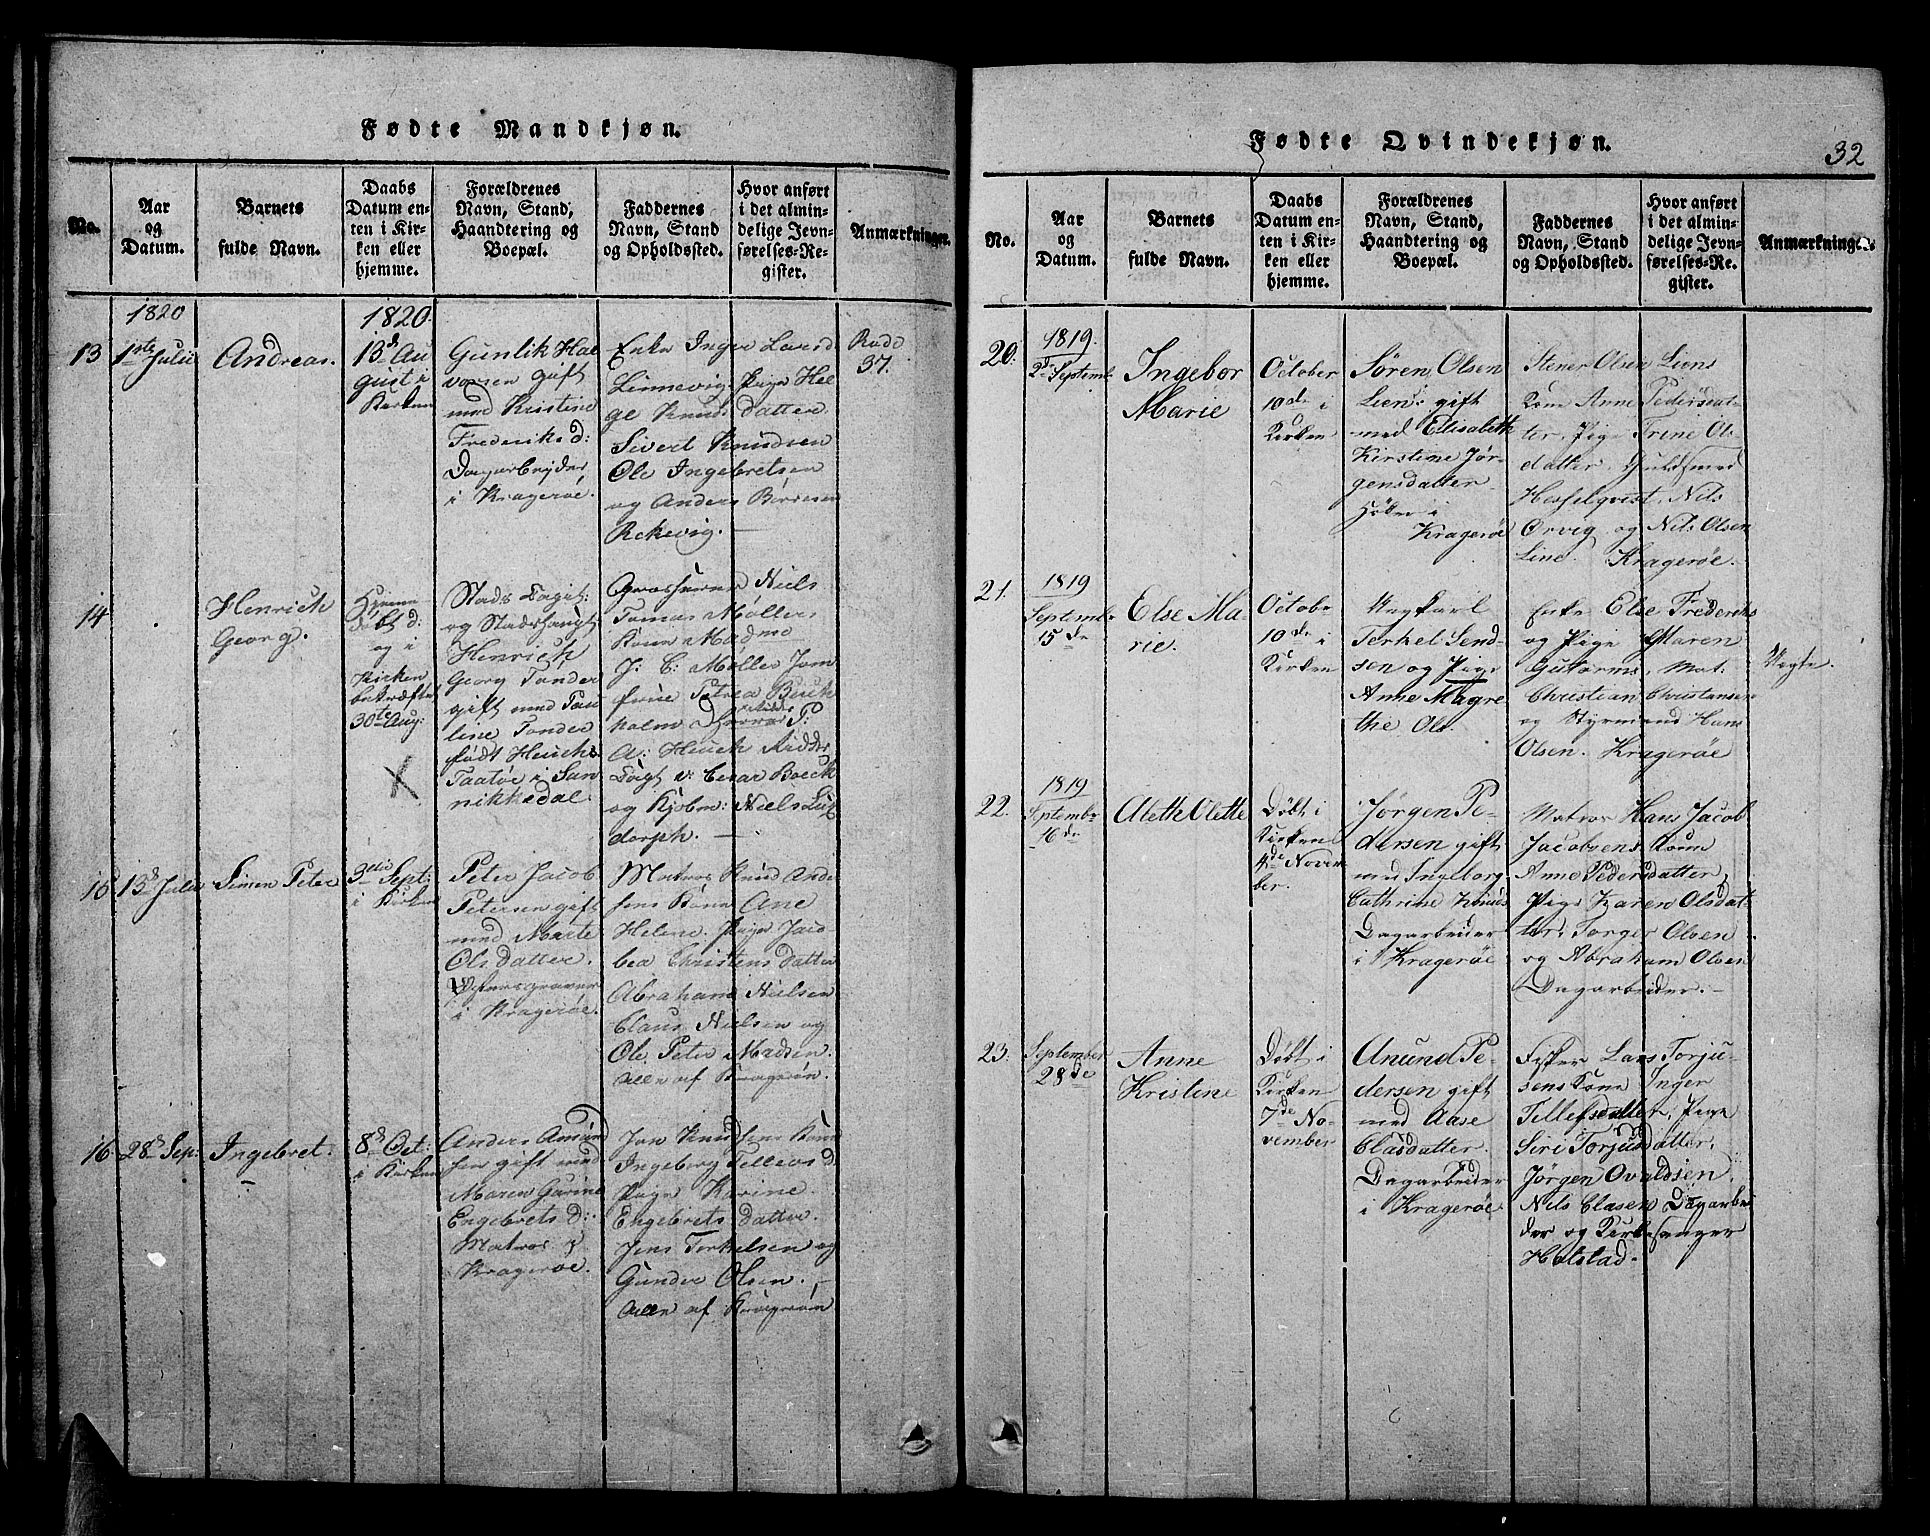 Fødte Mandkjøn.
No.
Aar
og
Datum.
Barnets
fulde Navn.
Daabs
Datum en-
ten i Kir-
ken eller
hjemme.
Forældrenes
Navn, Stand,
Haandtering og
Boepæl.
Faddernes
Navn, Stand
og Opholdssted.
Hvor anført
i det almin-
delige Jevn-
førelses-Re-
gister.
Anmærkninger.
1820
13
1ste Julii
Andreas.
1820
13d Au
gust i
Kirken
Gunlik Hal
vorsen gift
med Kristine
Frederiks d:
Dagarbejder
i Kragerøe.
Enke Inger Lars d
Linnevig. Pige Hel
ge Knuds datter
Sivert Knudsen
Ole Ingebretsen
og Anders Børresen
Rekevig. —
37.
14
Henrich
Georg.
Hjemme
døbt d:
og i
Kirken
bekræftet
30te Aug:
X
Stads
og Stadshaupt
Henrich
Georg Tonder
gift med Pau
line Tonder
født Heuchs
Taatøe i San
nikkedal.
Niels
Tomas Møllers
Kone Madme
J: C: Møller Jom
frue Petrea Buck
holm
A: Heuch Ridder
Boeck
og Kjøbm: Niels Lütz
dorph. —
15
13d Julii
Simen Peter
3die Sept:
i Kirken
Peter Jacob
Petersen gift
med Marte
Ols datter.
i Kragerøe.
Matros Knud Ander
sens Kone Ane
Helene. Pige Jaco
bea Christens datter
Abraham Nielsen
Claus Nielsen og
Ole Peter Madsen.
alle af Kragerøen.
16
28d Sep:
Ingebret.
8d Oct:
i Kirken
Anders Amund
sen gift med
Maren Gurine
Engebrets d:
Matros
Kragerøe.
Jon Knudsens Kone
Ingeborg Tellevs d
Pige Karine
Engebrets datter.
Jens Terkelsen og
Gunder Olsen. —
alle af Kragerøen
Fødte Qvindekjøn.
32
No.
Aar
og
Datum.
Barnets
fulde Navn.
Daabs
Datum en-
ten i Kir-
ken eller
hjemme.
Forældrenes
Navn, Stand,
Haandtering og
Boepæl.
Faddernes
Navn, Stand
og Opholdssted.
Hvor anført
i det almin-
delige Jevn-
førelses-Re-
gister.
Anmærkninger.
20.
1819.
2d Septemb.
Ingebor
Marie
October
10de i
Kirken
Søren Olsen
Lien: gift
med Elisabeth
Kirstine Jør-
gensdatter
Høker i
Kragerøe
Stener Olsen Liens
Kone Anne Pedersdat-
ter, Pige Trine Ols-
datter, Guldsmed
Hesselqvist, Nils
Orvig og Nils Olsen
Line. Kragerøe.
21.
1819
Septembr
15de
Else Ma-
rie.
Octobr
10de i
Kirken
Ungkarl
Terkel Send-
sen og Pige
Anne Magre
the Ols.
Enke Else Frederichs
og Pige Maren
Gutorms, Mat.
Christian Christansen
og Styrmand Hans
Olsen. Kragerøe
Uegte.
22.
1819
Septembr
16de
Aleth Olette
Døbt i
Kirken
4de Novem
ber.
Jørgen Pe-
dersen gift
med Ingeborg
Cathrine Knuds
Dagarbeider
i Kragerøe
Matros Hans Jacob
Jacobsens Kone
Anne Pedersdatter,
Pige Karen Olsdat-
ter, Torger Olsen
og Abraham Olsen
Dagarbeider. —
23.
September
28de
Anne
Kristine
Døbt i
Kirken
7de No-
vember
Anund Pe-
dersen gift
med Aase
Clasdatter.
Dagarbeider
i Kragerøe
Fisker Lars Torju-
sens Kone Inger
Tellefsdatter, Pige
Siri Torjusdatter,
Jørgen Ovaldsen,
Nils Clasen Dagarbei
der og Kirkesanger
Halstad.